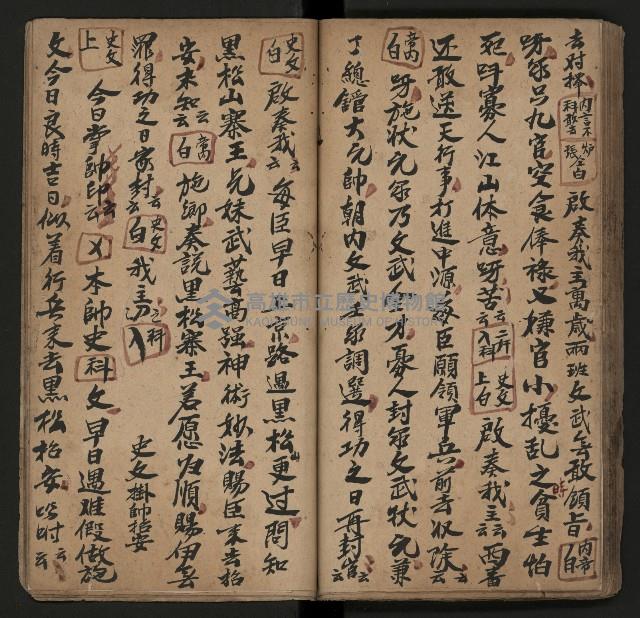 去対擇 內言不科敢言 炉張台白 啟奏我主萬歲兩班文武無敢領旨 內帝白
呀卿只九官空食俸祿又嫌官小擾乱之貪士怕時
死呀寡人江山体意呀苦云云 入科 一斤 史文上白 啟奏我主云云西畨
还敢逆天行事打進中源每臣願領軍兵前去收除云云
寡白 呀施状元卿乃文武人才寡人封卿文武状元兼
丁總鎧大元帥朝內文武士卿調選得功之日再封官云云
史文白 啟奏我云云每臣早日京路過黑松山更过問知
黑松山寨王兄妹武藝高强神術妙法賜臣來去招
安未知云云 寡白 施卿奏說黑松寨王若愿归順賜伊無
罪得功之日家封云云 史文白 我主万 科入 史文掛帥招安
史文上 今日掌帥印云云 乂 本帥史 科 文早日遇难假做施
文今日良時吉日似着行兵來去黑松招安 吩咐云云
高雄市立歷史博物館
KAOHSIUNG MUSEUM OF HISTORY